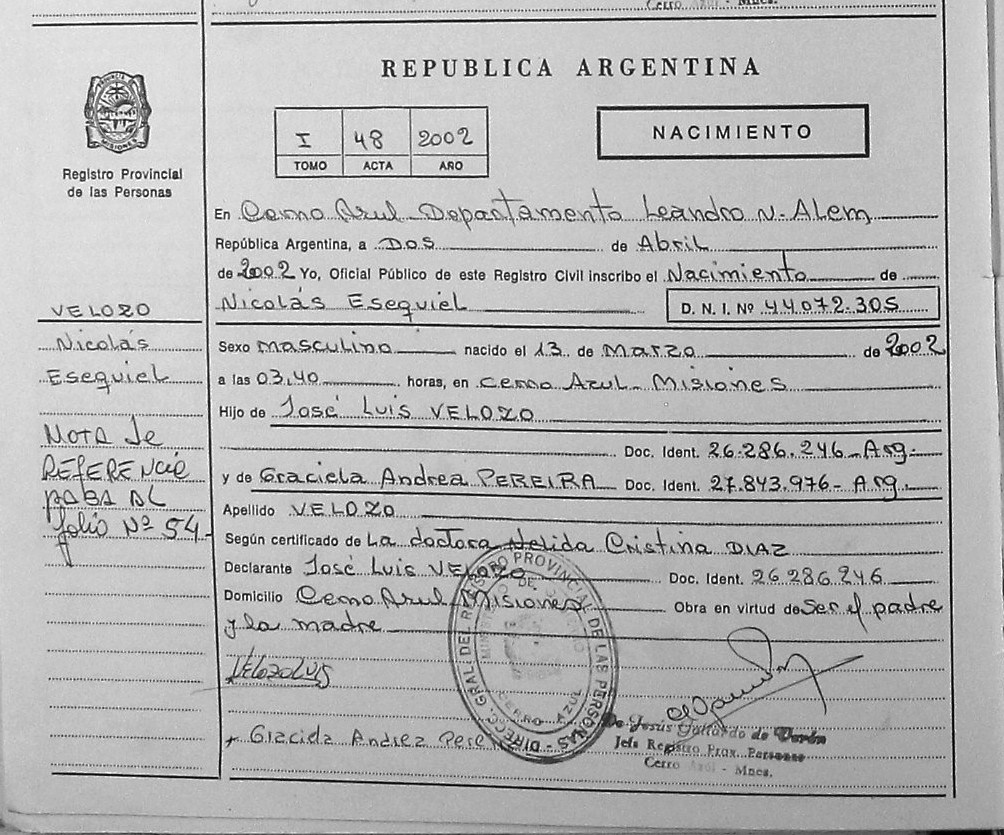 Cerro Azul - Mnes.
REPUBLICA ARGENTINA
PROVINCIA DE MISIONES
Registro Provincial
de las Personas
I 48 2002
TOMO ACTA AÑO
NACIMIENTO
En Cerro Azul Departamento Leandro N. Alem
República Argentina, a Dos de Abril
de 2002 Yo, Oficial Público de este Registro Civil inscribo el Nacimiento de
Nicolás Esequiel D. N. I. Nº 44072.305
VELOZO
Nicolás
Esequiel
Nota de
REFERENCIA
PASA AL
folio Nº 54
Sexo masculino nacido el 13 de Marzo de 2002
a las 03,40 horas, en Cerro Azul Misiones
Hijo de José Luis VELOZO
Doc. Ident. 26.286.246 - Arg.
y de Graciela Andrea PEREIRA Doc. Ident. 27.843.976 - Arg.
Apellido VELOZO
Según certificado de La doctora Nelida Cristina DIAZ
Declarante José Luis VELOZO Doc. Ident. 26.286.246
Domicilio Cerro Azul Misiones Obra en virtud de Ser el padre
y la madre
VELOZO LUIS
Graciela Andrea Pere
DIRECC. GRAL DEL REGISTRO PROVINCIAL DE LAS PERSONAS
CERRO AZUL
De Jesús Gallardo de Verón
Jefe Registro Prov. Personas
Cerro Azul - Mnes.